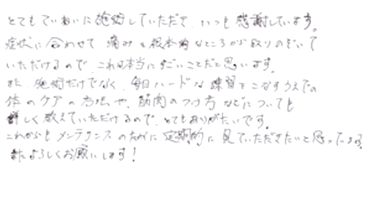 とてもていねいに施術していただき いつも感謝しています。
症状に合わせて 痛みを根本的なところから取りのぞいて
いただけるので これは本当にすごいことだと思います。
また 施術だけでなく、毎日ハードな練習をこなすうえでの
体のケアの方法や、筋肉のつけ方などについても
詳しく教えていただけるので、とてもありがたいです。
これからもメンテナンスのために定期的に見ていただきたいと思っています。
またよろしくお願いします！